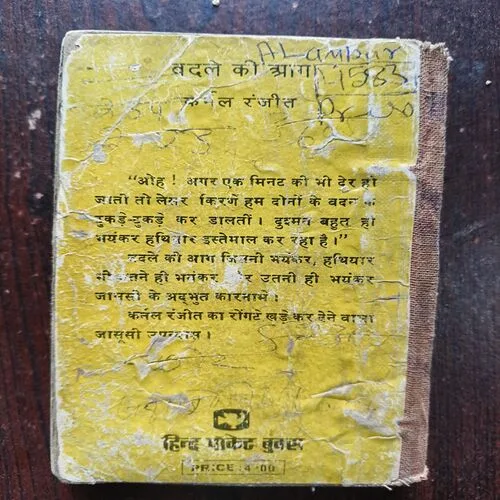 बदले की आग
कर्नल रंजीत
Alampur
1583
"ओह ! अगर एक मिनट की भी देर हो
जाती तो लेसर किरणें हम दोनों के बदन के
टुकड़े-टुकड़े कर डालतीं। दुश्मन बहुत ही
भयंकर हथियार इस्तेमाल कर रहा है।"
बदले की आग जितनी भयंकर, हथियार
भी उतने ही भयंकर और उतनी ही भयंकर
जानसी के अद्भुत कारनामे :
कर्नल रंजीत का रोंगटे खड़े कर देने वाला
जासूसी उपन्यास।
हिन्द पाकेट बुक्स
PRICE : 4·00